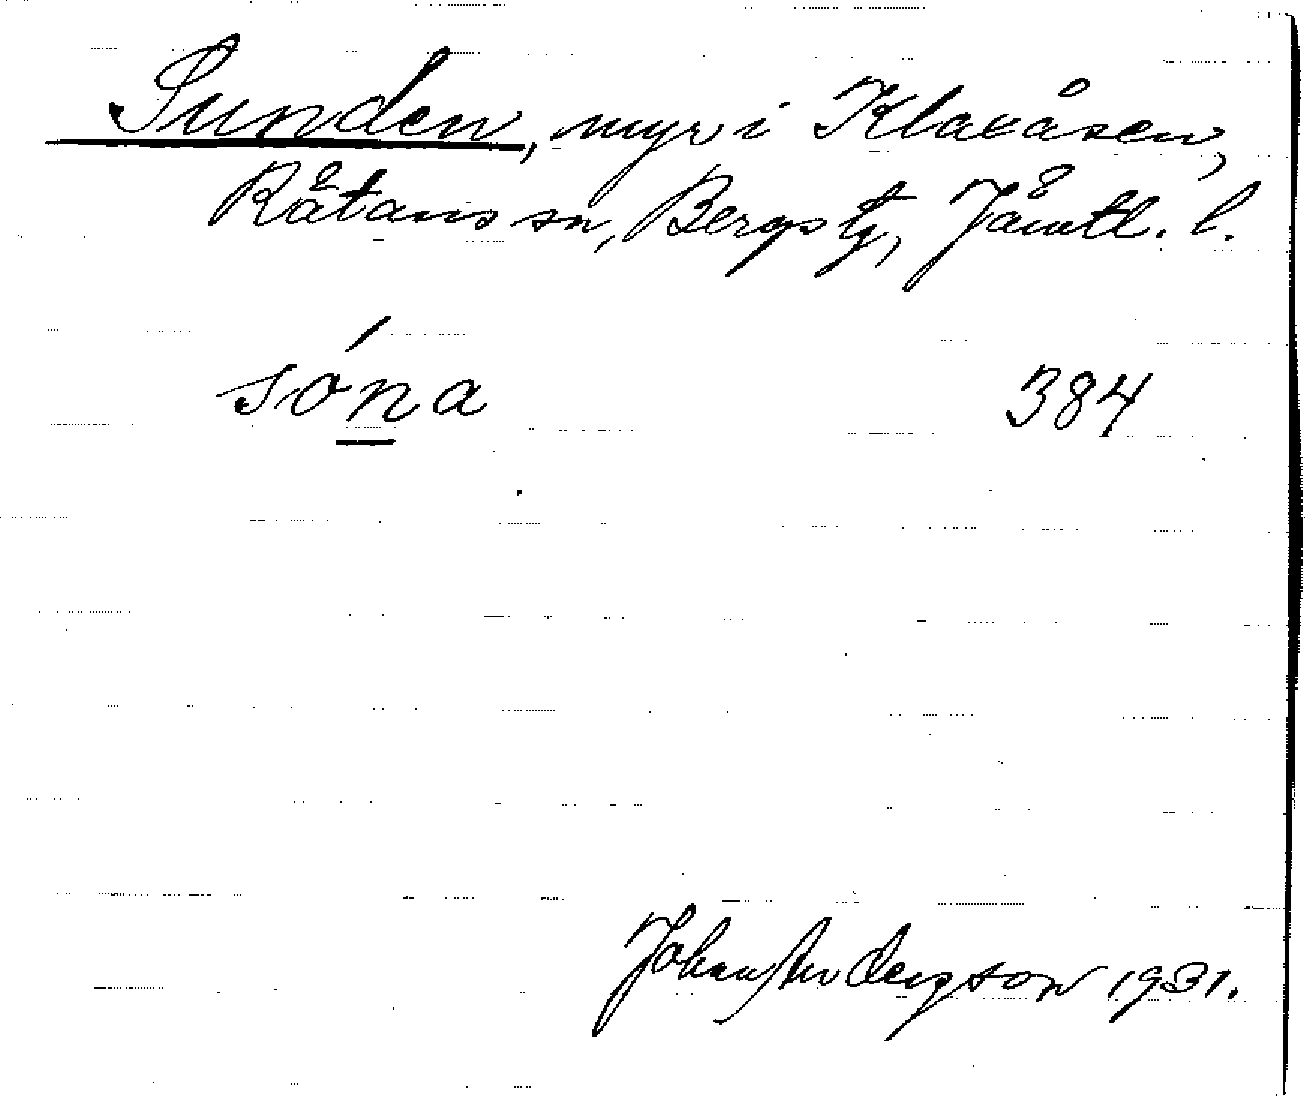 Sunden, myr i Klaxåsen,
Rätans sn, Bergs tg, Jämtl. l.
sóna 384
Johan Anderzson 1931.